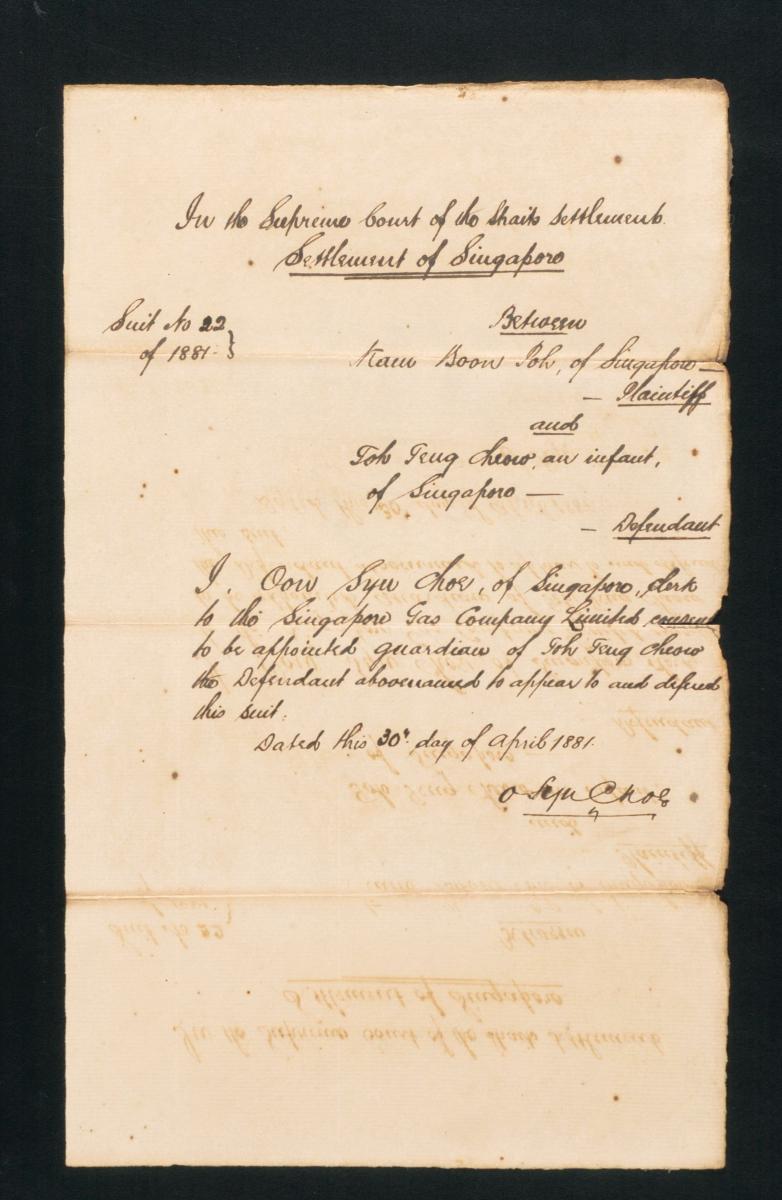 In the Supreme Court of the Straits Settlements
Settlement of Singapore
Suit No 22
of 1881.
Between
Boon Poh, of Singapore —
— Plaintiff
and
Toh Teng Cheow, an infant,
of Singapore —
— Defendant
I, Oow Syn Choe, of Singapore, clerk
to the Singapore Gas Company Limited consent
to be appointed guardian of Toh Teng Cheow
the Defendant abovenamed to appear to and defend
this suit.
Dated this 30th day of April 1881.
O Syn Choe